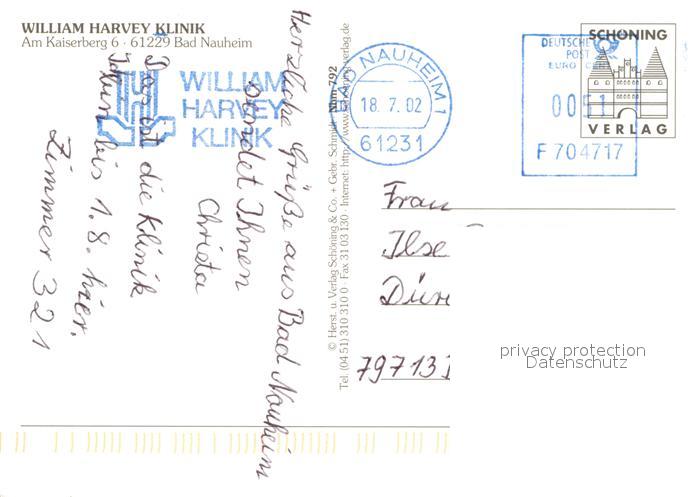 WILLIAM HARVEY KLINIK
Am Kaiserberg 6 · 61229 Bad Nauheim
WILLIAM
HARVEY
KLINIK
BAD NAUHEIM 1
18. 7. 02
61231
DEUTSCHE
POST
EURO
0051
F 704717
SCHÖNING
VERLAG
Herzliche Grüße aus Bad Nauheim
sendet Ihnen
Christa
Das ist die Klinik
bis 1. 8. hier.
Zimmer 321
© Herst. u. Verlag Schöning & Co. + Gebr. Schmidt
Tel. (04 51) 310 310 0 · Fax 31 03 130 · Internet: http://www.schoening-verlag.de
Nau 792
Frau
Ilse
Dür
79713
privacy protection
Datenschutz